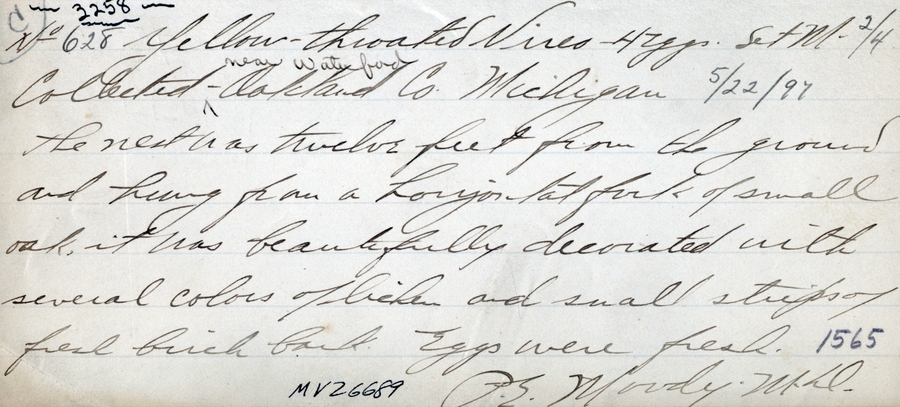 C 3258
No 628 Yellow-throated Vireo 4 Eggs. Set M. 2/4
near Waterford
Collected - Oakland Co. Michigan 5/22/97
The nest was twelve feet from the ground
and hung from a horizontal fork of small
oak, it was beautifully decorated with
several colors of lichen and small strips of
fresh birch bark. Eggs were fresh. 1565
P.E. Moody.
MVZ6689